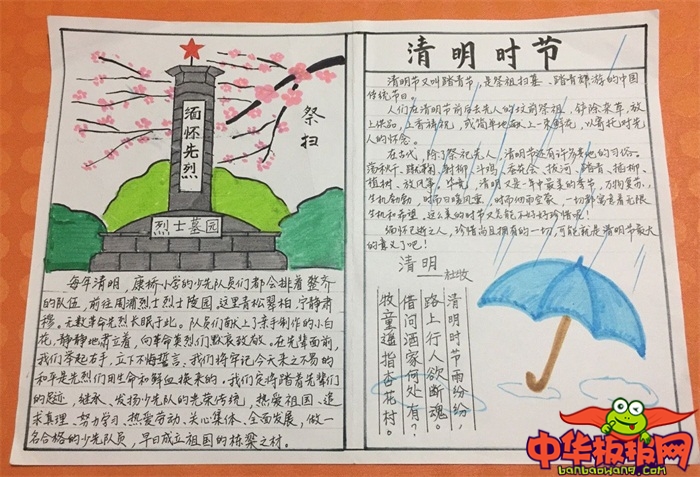 缅怀先烈
祭扫
烈士墓园
每年清明，康桥小学的少先队员们都会排着整齐
的队伍，前往周浦烈士烈士陵园，这里青松翠柏，宁静肃
穆。无数革命先烈长眠于此。队员们献上了亲手制作的小白
花，静静地肃立着，向革命英烈们默哀致敬。在先辈面前，
我们举起右手，立下不悔誓言：我们将牢记今天来之不易的
和平是先烈们用生命和鲜血换来的，我们定将踏着先辈们
的足迹，继承、发扬少先队的光荣传统，热爱祖国、追
求真理、努力学习、热爱劳动、关心集体、全面发展，做一
名合格的少先队员，早日成立祖国的栋梁之材。
清明时节
清明节又叫踏青节，是祭祖扫墓、踏青郊游的中国
传统节日。
人们在清明节前后去先人的坟前祭祖，铲除杂草，放
上供品，上香祷祝，或简单地献上一束鲜花，以寄托对先
人的怀念。
在古代，除了祭祀先人，清明节还有许多其他的习俗。
荡秋千、蹴鞠、射柳、斗鸡、蚕花会、拔河、踏青、插柳、
植树、放风筝。毕竟，清明又是一年中最美的季节，万物复苏，
生机勃勃，时而日暖风和，时而细雨空蒙，一切都寓意着无限
生机和希望，这么美的时节又怎能不好好珍惜呢！
缅怀已逝之人，珍惜尚且拥有的一切，可能就是清明节最大
的意义了吧！
清明
杜牧
清明时节雨纷纷，
路上行人欲断魂。
借问酒家何处有？
牧童遥指杏花村。
中华板报网
banbaowang.com